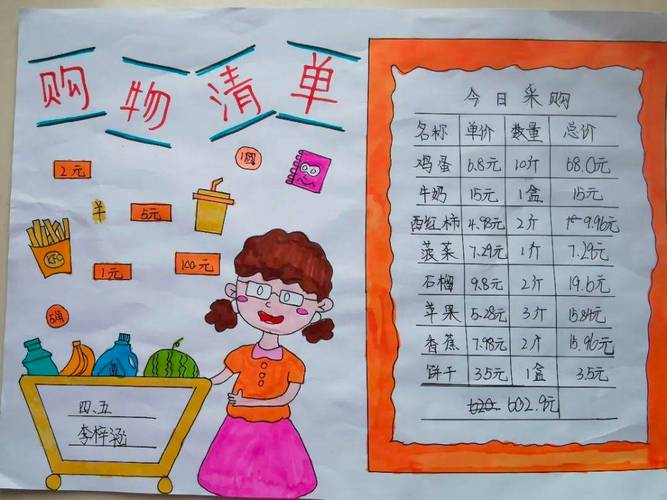 购物清单
2元
1角
羊
5元
KFC
1元
100元
5角
四、五
李梓涵
今日采购
名称 单价 数量 总价
鸡蛋 6.8元 10斤 68.0元
牛奶 15元 1盒 15元
西红柿 4.98元 2斤 9.96元
菠菜 7.29元 1斤 7.29元
石榴 9.8元 2斤 19.6元
苹果 5.28元 3斤 15.84元
香蕉 7.98元 2斤 15.96元
饼干 3.5元 1盒 3.5元
602.9元